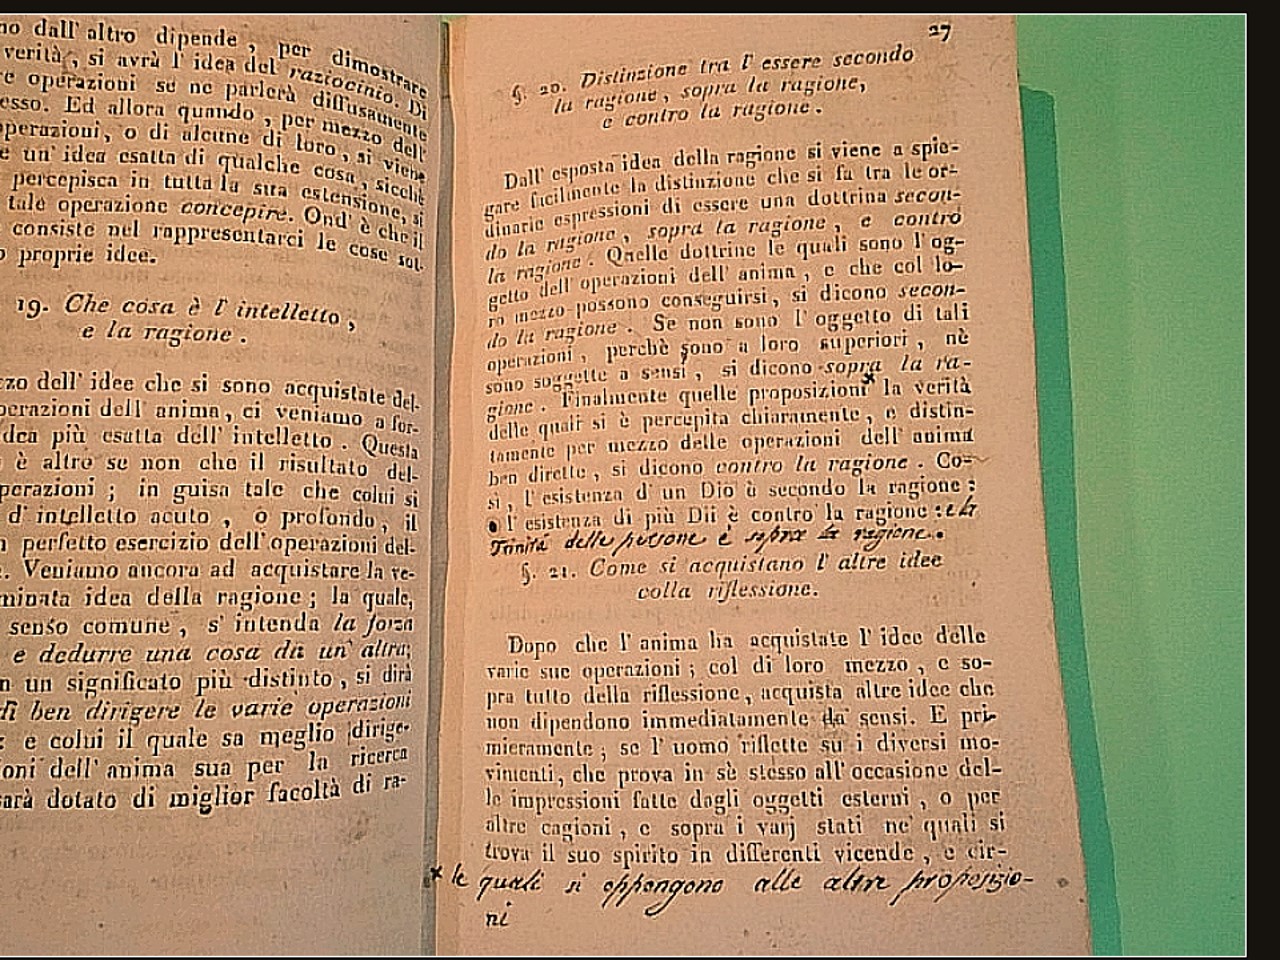 no dall' altro dipende, per dimostrare
verità, si avrà l' idea del raziocinio. Di
re operazioni se ne parlerà diffusamente
esso. Ed allora quando, per mezzo dell'
operazioni, o di alcune di loro, si viene
e un' idea esatta di qualche cosa, sicchè
percepisca in tutta la sua estensione, si
tale operazione concepire. Ond' è che il
consiste nel rappresentarci le cose sot-
o proprie idee.
19. Che cosa è l' intelletto,
e la ragione.
zzo dell' idee che si sono acquistate del-
perazioni dell anima, ci veniamo a for-
dea più esatta dell' intelletto. Questa
è altro se non che il risultato del-
perazioni; in guisa tale che colui si
d' intelletto acuto, o profondo, il
n perfetto esercizio dell'operazioni del-
. Veniamo ancora ad acquistare la ve-
minata idea della ragione; la quale,
senso comune, s' intenda la forza
e dedurre una cosa da un' altra;
n un significato più distinto, si dirà
di ben dirigere le varie operazioni
: e colui il quale sa meglio dirige-
oni dell' anima sua per la ricerca
sarà dotato di miglior facoltà di ra-
27
§. 20. Distinzione tra l' essere secondo
la ragione, sopra la ragione,
e contro la ragione.
Dall' esposta idea della ragione si viene a spie-
gare facilmente la distinzione che si fa tra le or-
dinarie espressioni di essere una dottrina secon-
do la ragione, sopra la ragione, e contro
la ragione. Quelle dottrine le quali sono l' og-
getto dell' operazioni dell' anima, e che col lo-
ro mezzo possono conseguirsi, si dicono secon-
do la ragione. Se non sono l' oggetto di tali
operazioni, perchè sono a loro superiori, nè
sono soggette a sensi, si dicono sopra la ra-
gione. Finalmente quelle proposizioni* la verità
delle quali si è percepita chiaramente, e distin-
tamente per mezzo delle operazioni dell' anima
ben dirette, si dicono contro la ragione. Co-
sì, l' esistenza d' un Dio è secondo la ragione:
l' esistenza di più Dii è contro la ragione: e la
Trinità delle persone è sopra la ragione.
§. 21. Come si acquistano l' altre idee
colla riflessione.
Dopo che l' anima ha acquistate l' idee delle
varie sue operazioni; col di loro mezzo, e so-
pra tutto della riflessione, acquista altre idee che
non dipendono immediatamente da' sensi. E pri-
mieramente; se l' uomo riflette su i diversi mo-
vimenti, che prova in sè stesso all' occasione del-
le impressioni fatte dagli oggetti esterni, o per
altre cagioni, e sopra i varj stati ne' quali si
trova il suo spirito in differenti vicende, e cir-
* le quali si oppongono alle altre proposizio-
ni